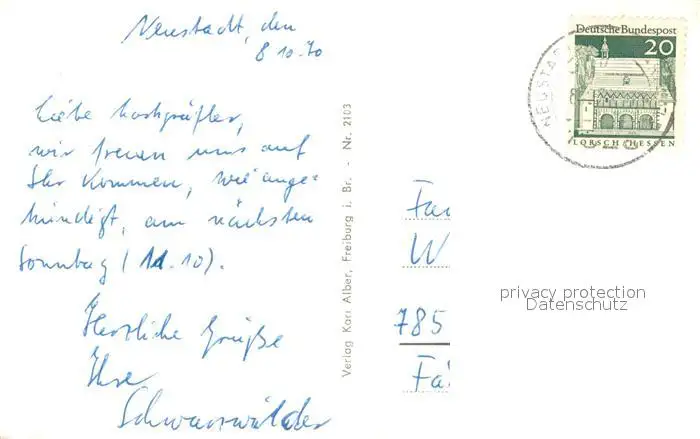 Neustadt, den
8 10.70
Liebe
wir freuen uns auf
Ihr Kommen, wie ange=
kündigt, am nächsten
Sonntag (11.10).
Herzliche Grüße
Ihre
Schwarzwälder
Verlag Karl Alber, Freiburg i. Br. - Nr. 2103
Deutsche Bundespost
20
LORSCH/HESSEN
NEUSTA
Fa
W
785
Fa
privacy protection
Datenschutz